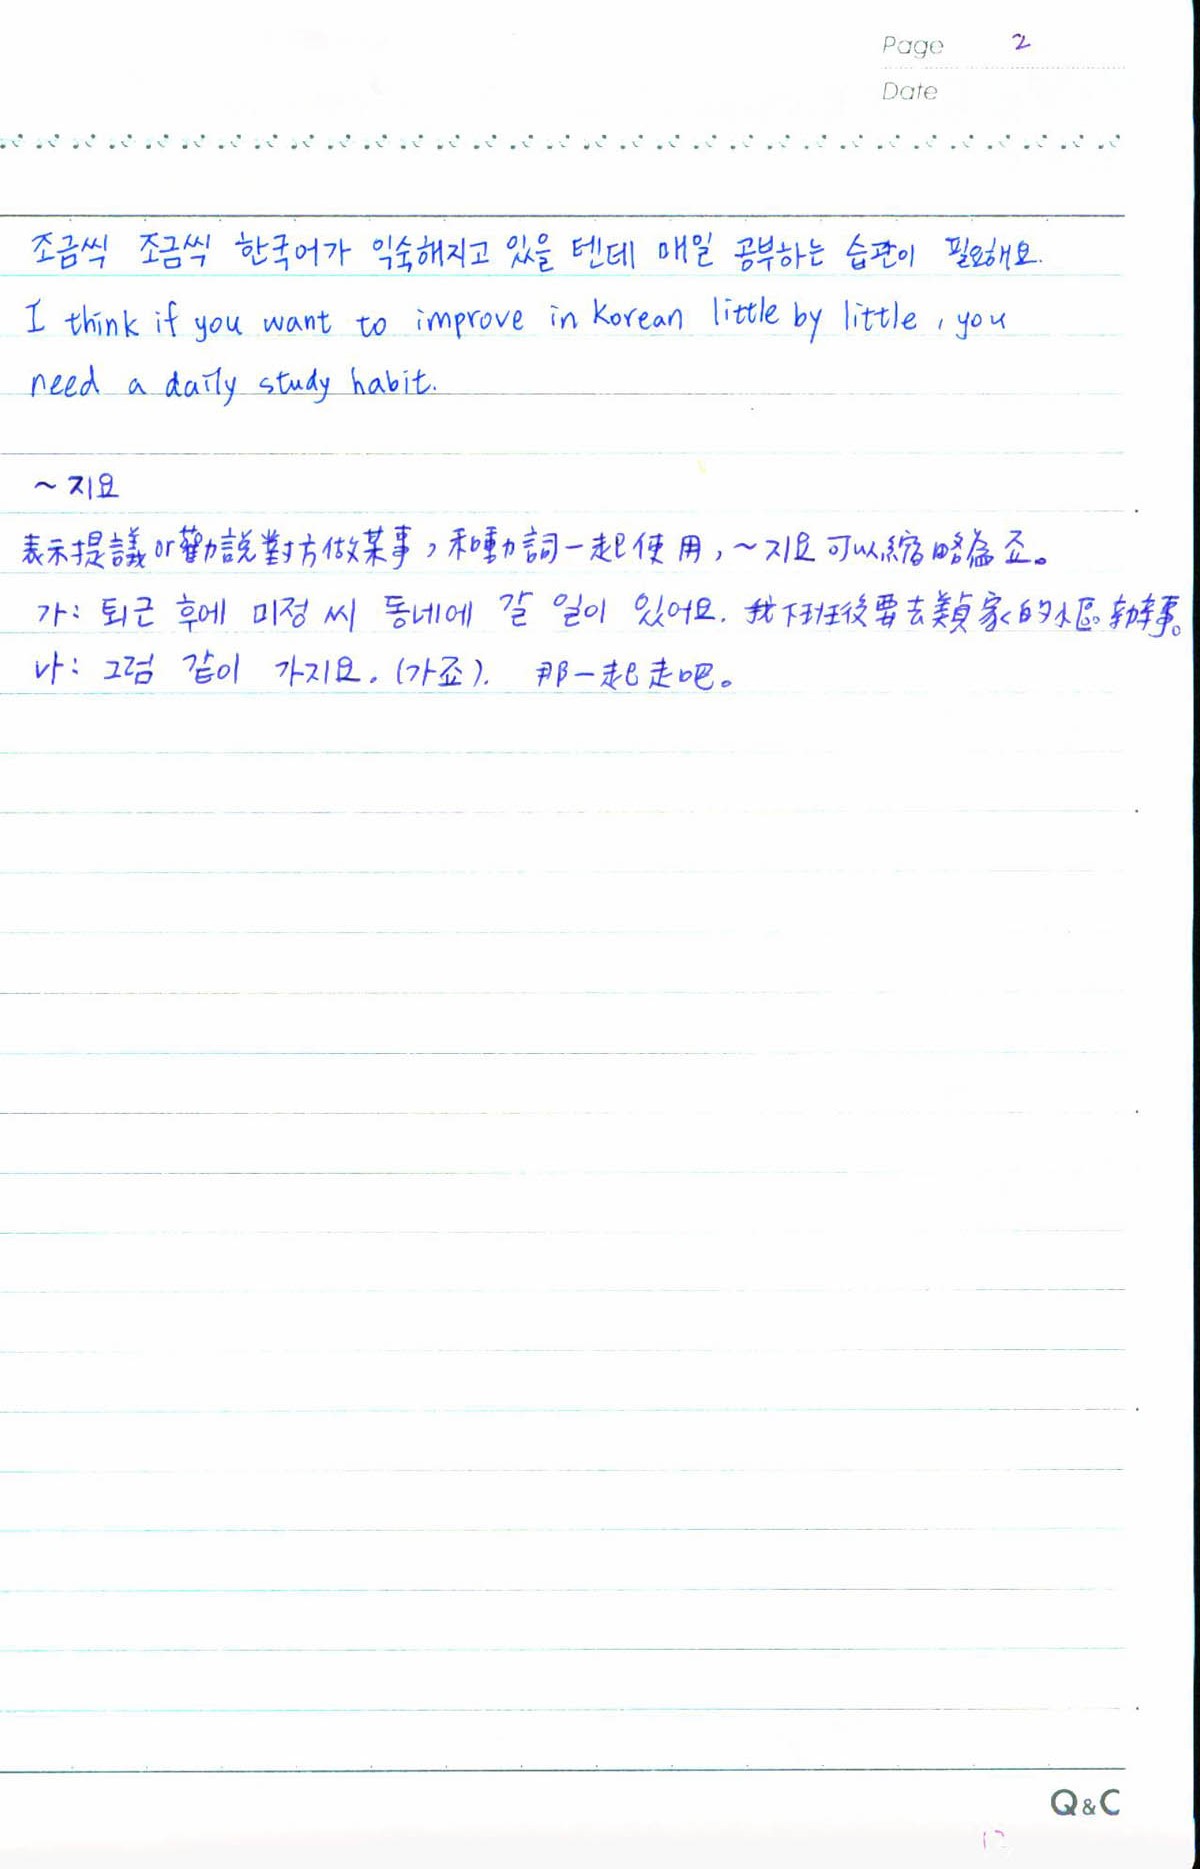 Page 2
Date
조금씩 조금씩 한국어가 익숙해지고 있을 텐데 매일 공부하는 습관이 필요해요.
I think if you want to improve in Korean little by little, you
need a daily study habit.
~지요
表示提議or勸說對方做某事,和動詞一起使用,~지요可以縮略為죠。
가: 퇴근 후에 미정 씨 동네에 갈 일이 있어요. 我下班後要去美貞家的小區辦事。
나: 그럼 같이 가지요. (가죠). 那一起走吧。
Q&C
12